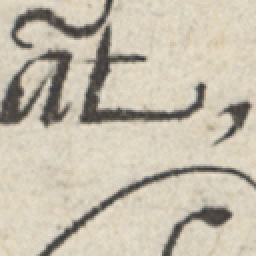 ãt,